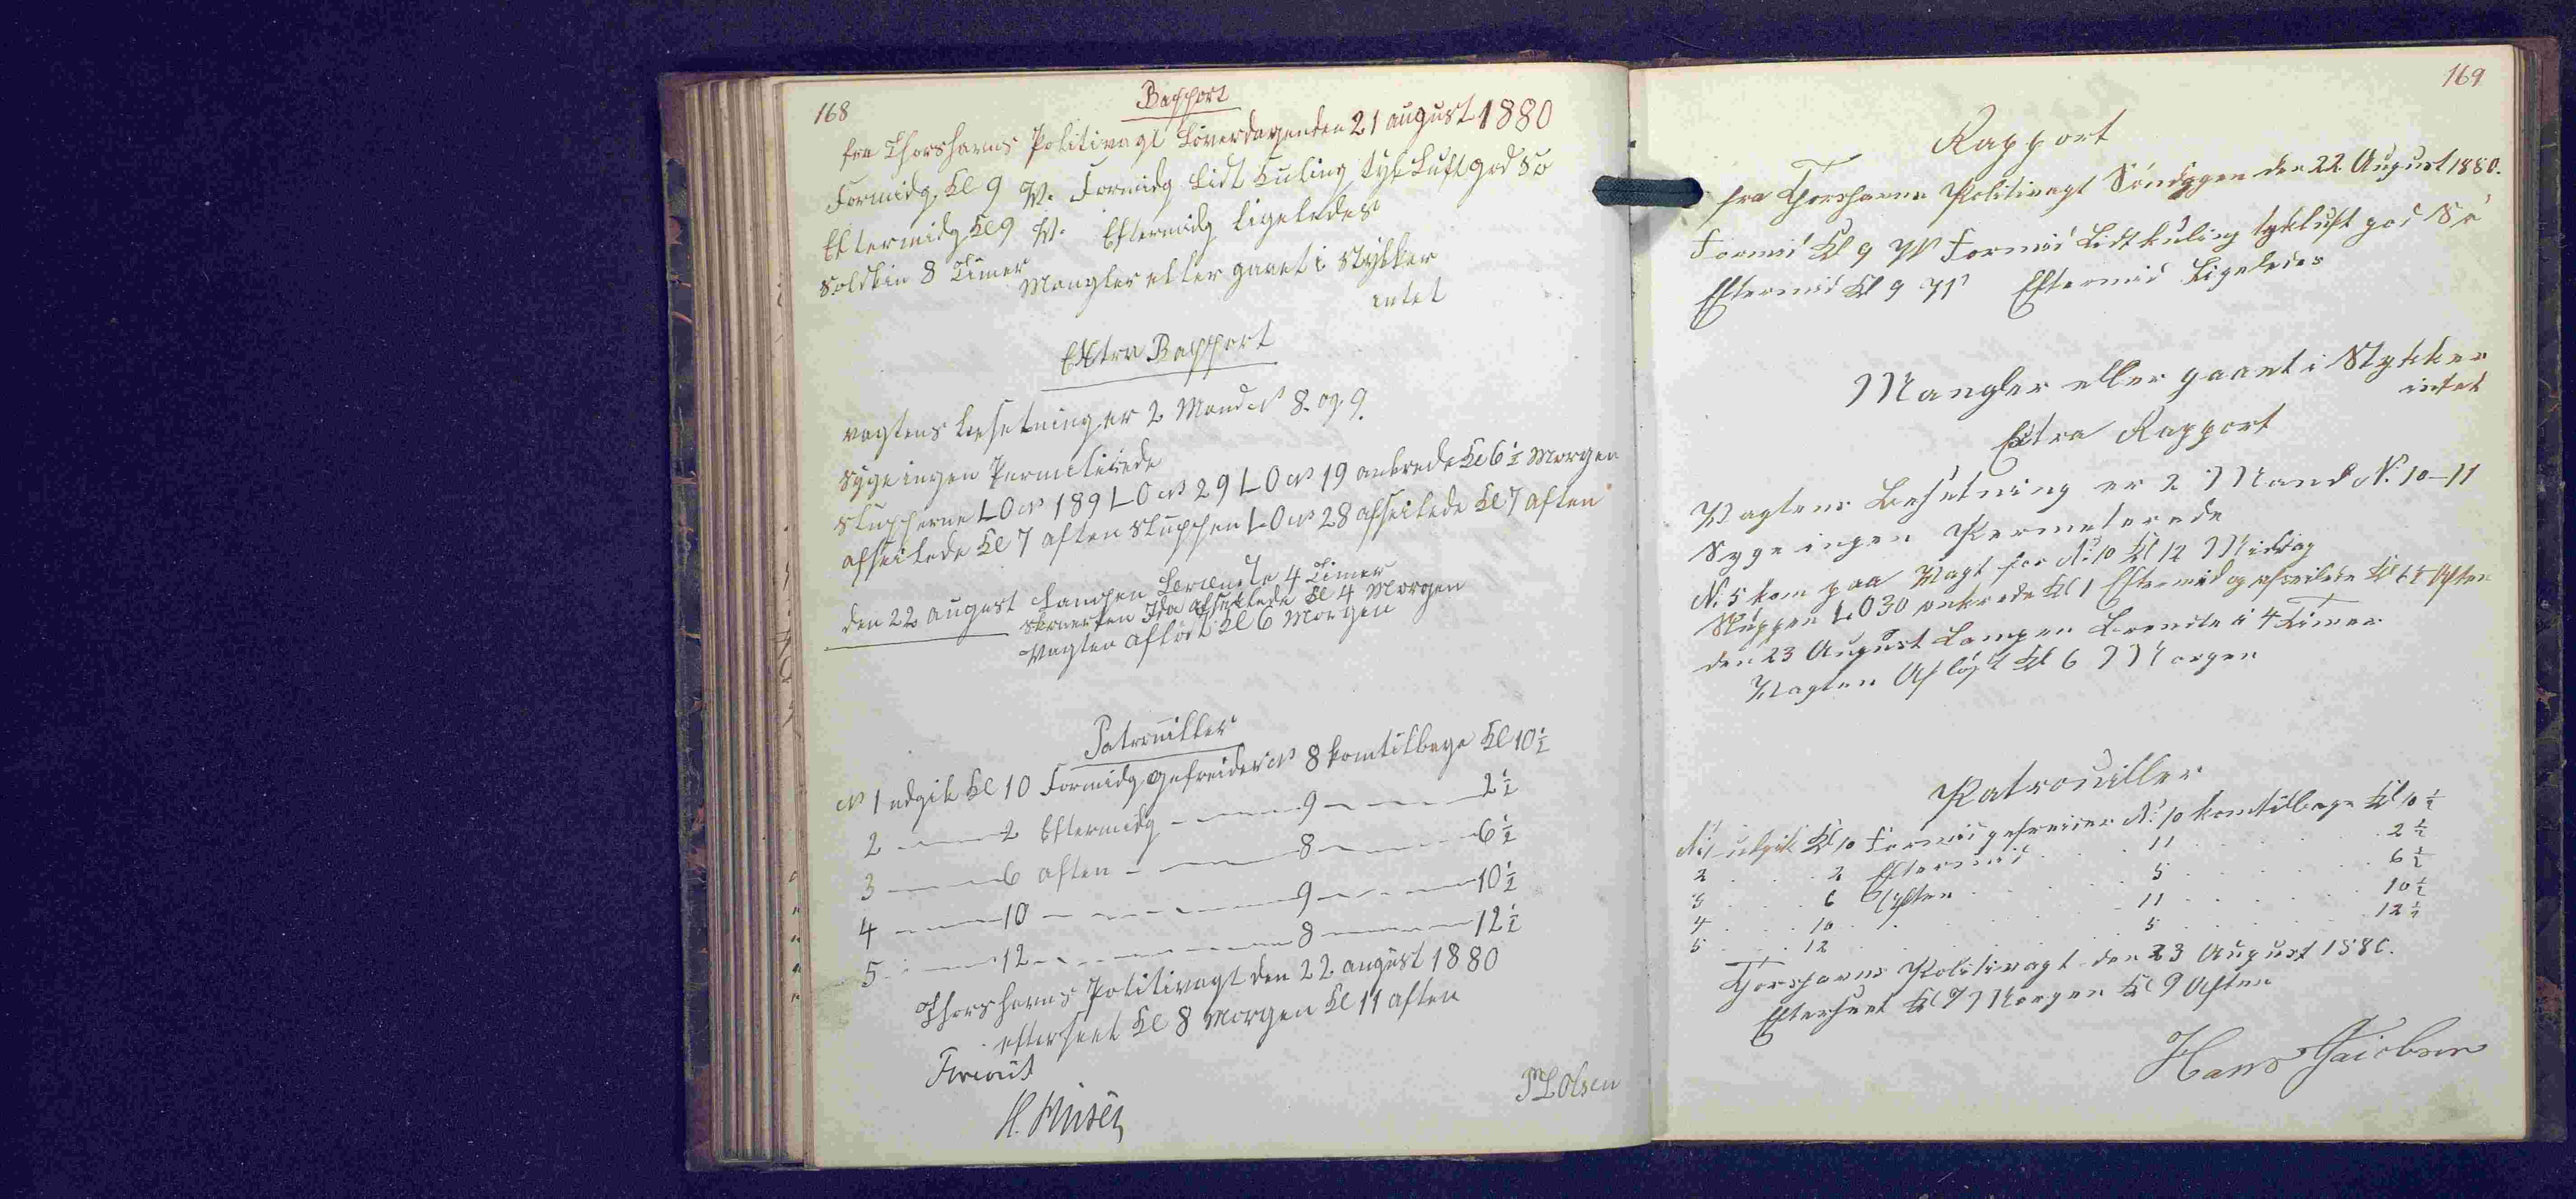 168
Rapport
fra Thorshavns Politivagt Löverdagen den 21 august 1880
Formidg. Kl 9 W. Formidg Lidt Kuling tyk Luft god Sö
Eftermidg Kl 9 W. Eftermidg ligeledes
Solskin 8 Timer
Mangler eller gaaet i Stykker
intet
Extra Rapport
vagtens besetning er 2 Mand No 8. og 9.
Syge ingen Permiterede
Slupperne LO No 189 LO No 29 LO No 19 ankrede Kl 6 1/2 Morgen
afseilede Kl 7 aften Sluppen LO No 28 afseilede Kl 7 aften
den 22 august Lampen Brændte 4 Timer
Skonerten Ida afseilede Kl 4 Morgen
Vagten aflöst Kl 6 Morgen
Patrouiller
No 1 udgik Kl 10 Formidg gefreider No 8 kom tilbage Kl 10 1/2
2 — 2 Eftermidg — 9 — 2 1/2
3 — 6 aften — 8 — 6 1/2
4 — 10 — 9 — 10 1/2
5 — 12 — 8 — 12 1/2
Thorshavns Politivagt den 22 august 1880
efterseet Kl 8 Morgen Kl 11 aften
P M L Olsen
H.
169
Rapport
fra Thorshavns Politivagt Söndagen den 22 August 1880.
Formid Kl 9 W Formid Lidt kuling tyk luft god Sö
Eftermid Kl 9 W Eftermid Ligeledes
Mangler eller gaaet i Stykker
intet
Extra Rapport
Vagtens Besetning er 2 Mand N. 10-11
Syge ingen Permeterede
N. 5 kom paa Vagt for N. 10 Kl 12 Midag
Sluppen LO 30 ankrede Kl 1 Eftermid og afseilede Kl 6 1/2 Aften
den 23 August Lampen Brendte i 4 Timer
Vagten Aflöst Kl 6 Morgen
Patrouiller
No 1 udgik Kl 10 Formid gefreider No 10 kom tilbage Kl 10 1/2
2 . . . 2 Eftermid . . . 11 . . . 2 1/2
3 . . . 6 Aften . . . 5 . . . 6 1/2
4 . . . 10 . . . 11 . . . 10 1/2
5 . . . 12 . . . 5 . . . 12 1/2
Thorshavns Politivagt den 23 August 1880.
Efterseet Kl 7 Morgen Kl 9 Aften
Hans Jacobsen